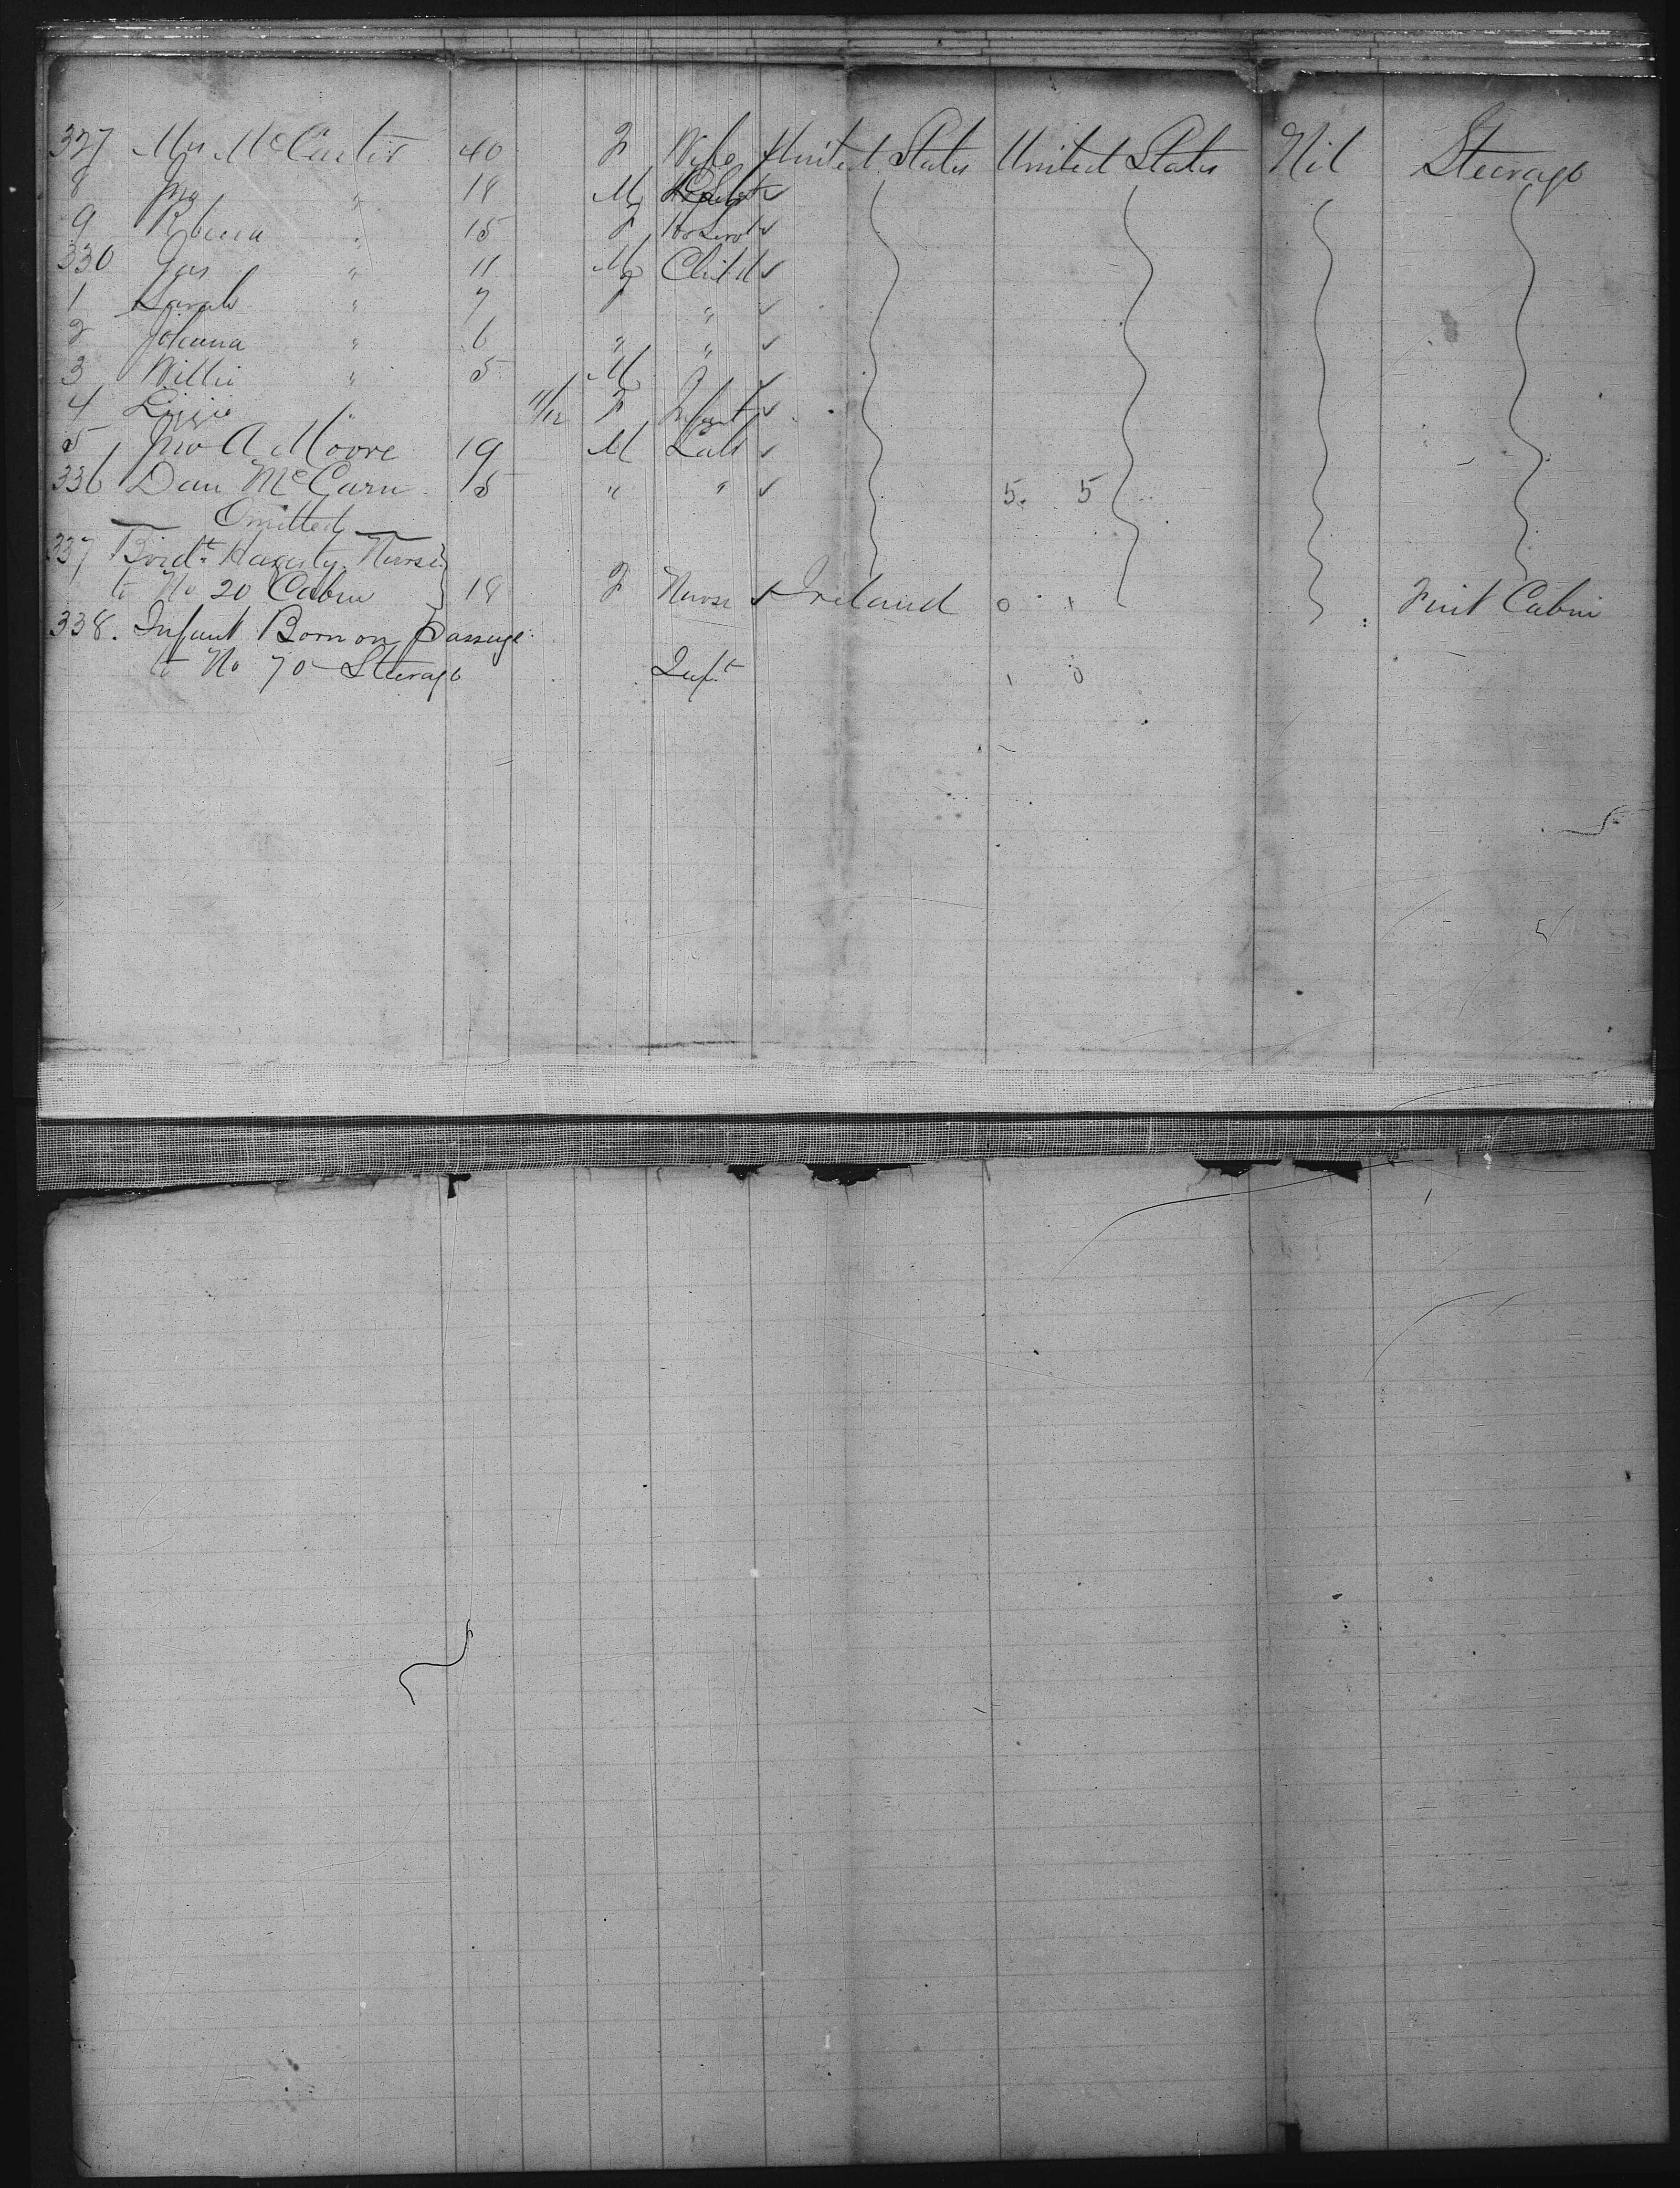 327 Mrs McCarter 40 F Wife ✓ United States United States Nil Steerage
8 Jno " 18 M ✓
9 Rbecca " 15 F Ho Servt ✓
330 Jas " 11 M Child ✓
1 Sarah " 7 F " ✓
2 Johanna " 6 " " ✓
3 Willie " 5 M " ✓
4 Lizzie " 11/12 F Infant ✓
5 Jno A Moore 19 M Lab ✓
336 Dan McCarn 15 " " ✓ 5. 5
Omitted
337 Bridt Hagerty Nurse
to No 20 Cabin 18 F Nurse ✓ Ireland 0 1 First Cabin
338. Infant Born on Passage
to No 70 Steerage Inft 1 0